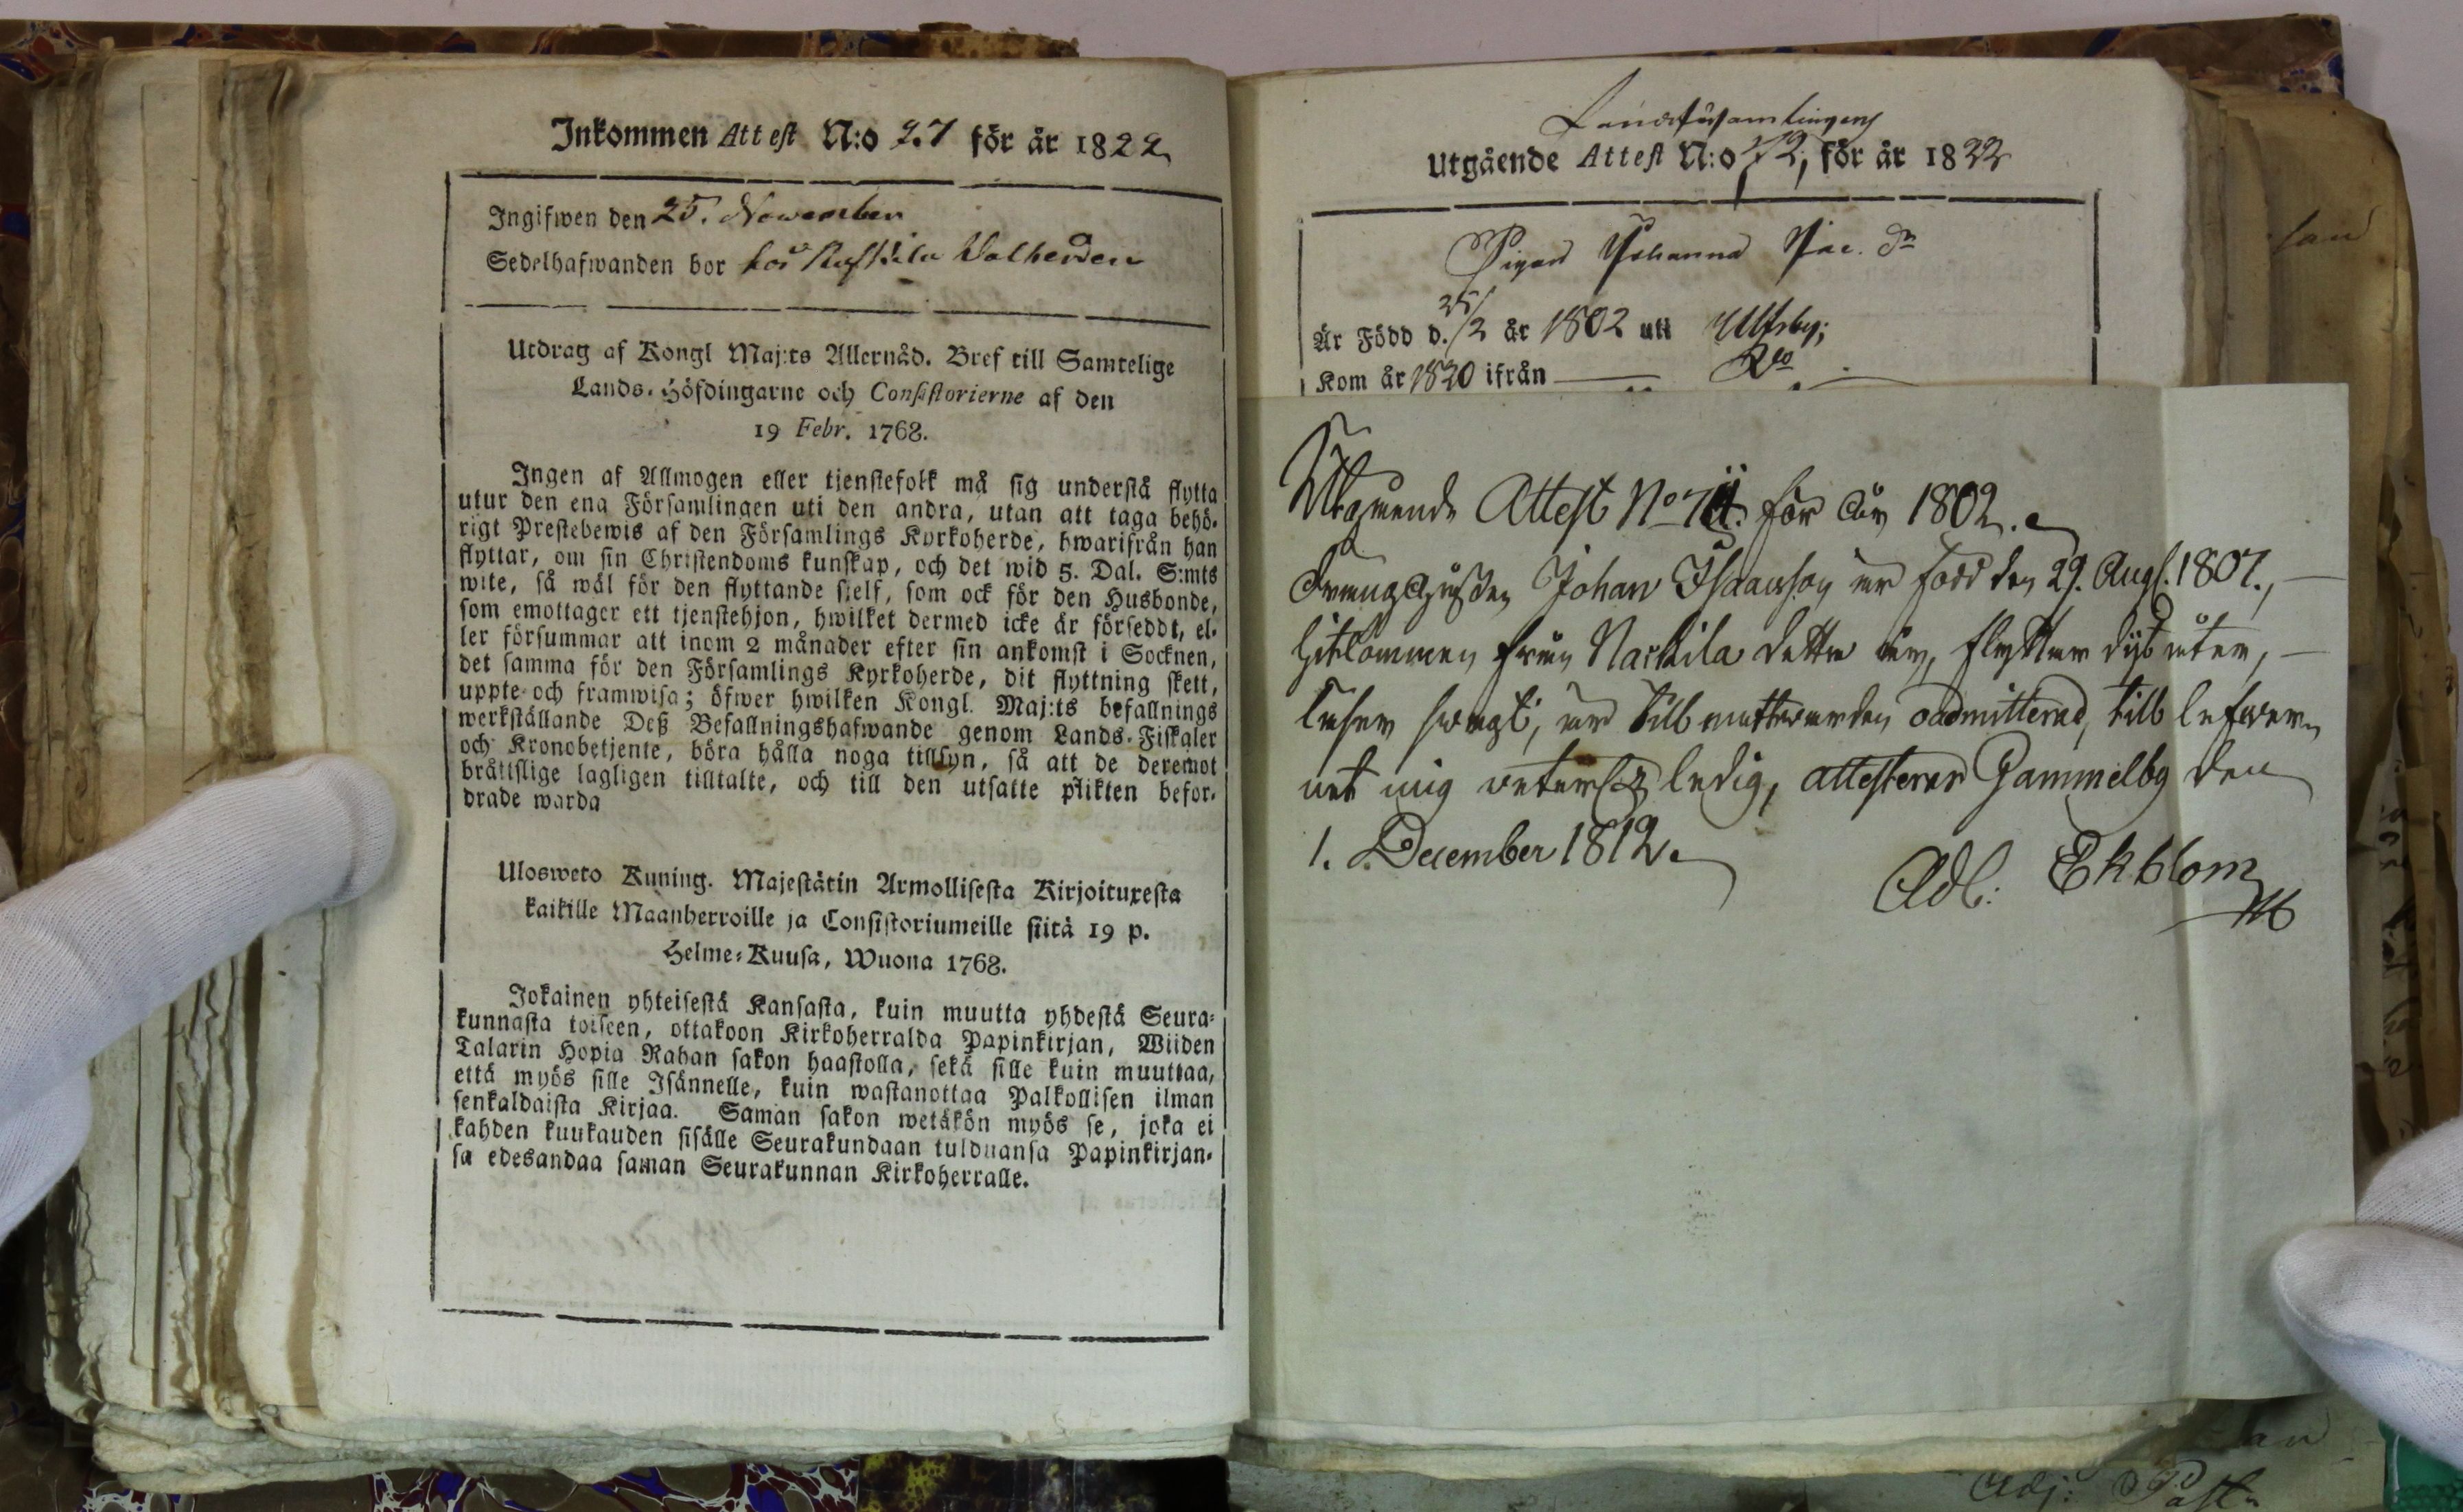 Inkommen Attest N:o 27 för år 1822
Ingifwen den 25. November
Sedelhafwanden bor hos
Utdrag af Kongl Maj:ts Allernåd. Bref till Samtelige
Lands-Höfdingarne och Consistorierne af den
19 Febr. 1768.
Ingen af Allmogen eller tjenstefolk må sig understå flytta
utur den ena Församlingen uti den andra, utan att taga behö-
rigt Prestebewis af den Församlings Kyrkoherde, hwarifrån han
flyttar, om sin Christendoms kunskap, och det wid 5. Dal. S:mts
wite, så wäl för den flyttande sjelf, som ock för den Husbonde,
som emottager ett tjenstehjon, hwilket dermed icke är förseddt, el-
ler försummar att inom 2 månader efter sin ankomst i Socknen,
det samma för den Församlings Kyrkoherde, dit flyttning skett,
uppte- och framwisa; öfwer hwilken Kongl. Maj:ts befallnings
werkställande Deß Befallningshafwande genom Lands-Fiskaler
och Kronobetjente, böra hålla noga tillsyn, så att de deremot
bråttslige lagligen tilltalte, och till den utsatte plikten befor-
drade warda
Ulosweto Kuning. Majestätin Armollisesta Kirjoituxesta
kaikille Maanherroille ja Consistoriumeille siitä 19 p.
Helme-Kuusa, Wuona 1768.
Jokainen yhteisestä Kansasta, kuin muutta yhdestä Seura-
kunnasta toiseen, ottakoon Kirkoherralda Papinkirjan, Wiiden
Talarin Hopia Rahan sakon haastolla, sekä sille kuin muuttaa,
että myös sille Isännelle, kuin wastanottaa Palkollisen ilman
senkaldaista Kirjaa. Saman sakon wetäkön myös se, joka ei
kahden kuukauden sisälle Seurakundaan tulduansa Papinkirjan-
sa edesandaa saman Seurakunnan Kirkoherralle.
Landsförsamlingens
Utgående Attest N:o 72, för år 1822
Pigan Johanna Jac. dr
Är Född d. 25/2 år 1802 uti Ulfsby;
Kom år 1820 ifrån Do
Utgående Attest No för år 1802.
Dränggåßen Johan Isaacsson är född den 29. Augs. 1807.,
hitkommen från Nackila detta år, flyttar dijt åter,
läser swagt, är till nattwarden oadmitterad, till lefwer-
net mig veterl. ledig, attesterar Gammelby den
1. December 1812.
Adl: Ekblom
Adj: Past.